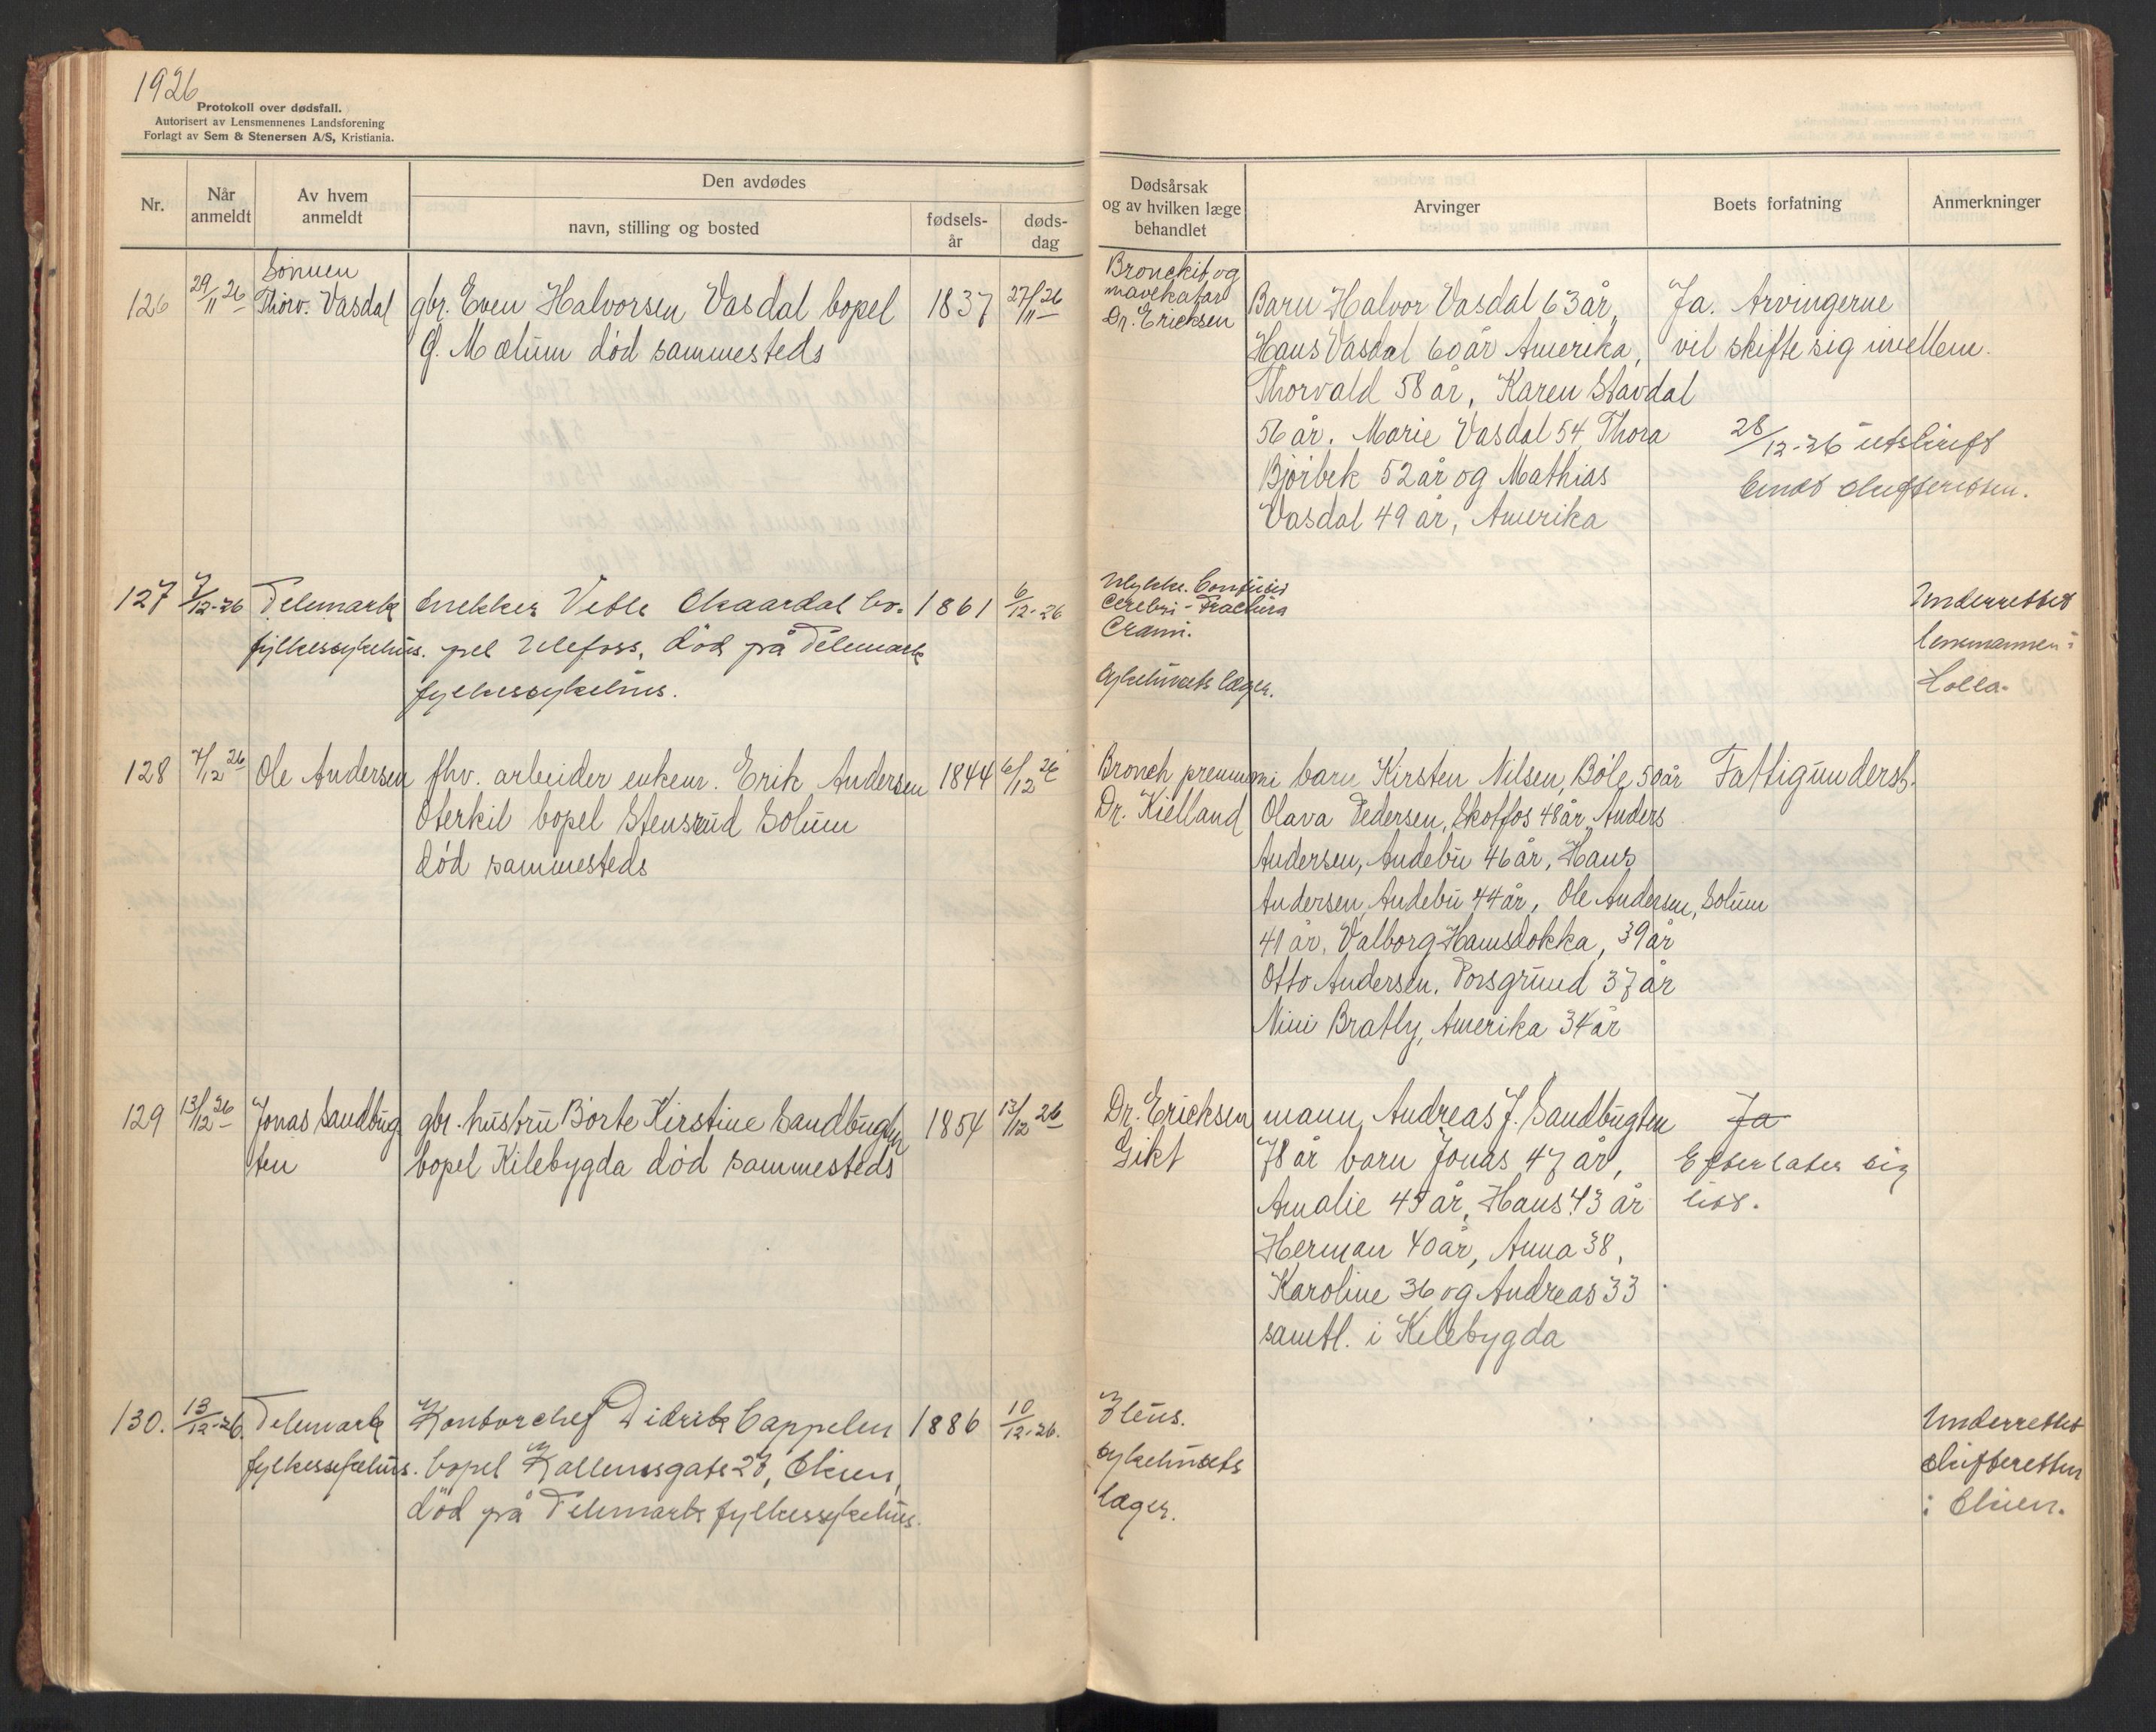 1926
Protokoll over dødsfall.
Autorisert av Lensmennenes Landsforening
Forlagt av Sem & Stenersen A/S, Kristiania.
Nr.
Når anmeldt
Av hvem anmeldt
Den avdødes
navn, stilling og bosted
fødsels-år
døds-dag
Dødsårsak og av hvilken læge behandlet
Arvinger
Boets forfatning
Anmerkninger
126 29/11 26 Sönnen Thorv. Vasdal
gbr. Even Halvorsen Vasdal bopel 1837 27/11 26
G. Mælum död sammesteds
Bronchit og
mavekatar
Dr. Ericksen
Barn Halvor Vasdal 63 år,
Hans Vasdal 60 år Amerika,
Thorvald 58 år, Karen Stavdal
56 år. Marie Vasdal 54 Thora
Bjôrbek 52 år og Mathias
Vasdal 49 år, Amerika
Ja. Arvingerne
vil skifte sig imellem.
28/12-26 utskrift
sendt skifteretten.
127 7/12-26 Telemark
fylkessykehus.
snekker Vetle Skaardal bo- 1861 6/12-26
pel Ulefoss, död på Telemark
fylkessykehus.
Ulykke. Contusio
cerebri - Fractura
Cranii.
Sykehusets læger.
Underrettet
lensmannen i
Holla.
128 7/12 26 Ole Andersen
fhv. arbeider enkem. Erik Andersen 1844 6/12 26
Oterkil bopel Stensrud Solum
död sammesteds
Bronch pneumoni
Dr. Kielland
barn Kirsten Nilsen, Böle 50 år
Olava Pedersen, Skotfos 48 år, Anders
Andersen, Andebu 46 år, Hans
Andersen, Andebu 44 år, Ole Andersen, Solum
41 år, Valborg Hamsdokka, 39 år
Otto Andersen, Porsgrund 37 år
Nini Bratly, Amerika 34 år
Fattigunderst.
129 13/12 26 Jonas Sandbug
ten
gbr. hustru Börte Kirstine Sandbugten 1854 13/12 26
bopel Kilebygda död sammesteds
Dr. Ericksen
Gikt
mann Andreas J. Sandbugten
78 år barn Jonas 47 år,
Amalie 45 år, Hans 43 år
Herman 40 år, Anna 38,
Karoline 36 og Andreas 33
samtl. i Kilebygda
Ja
Efterlater sig
litt.
130. 13/12-26. Telemark
fylkessykehus.
Kontorchef Didrik Cappelen 1886 10/12-26.
bopel Kallemsgate 27, Skien,
död på Telemark fylkessykehus.
Ileus.
sykehusets
læger.
Underrettet
skifteretten
i Skien.